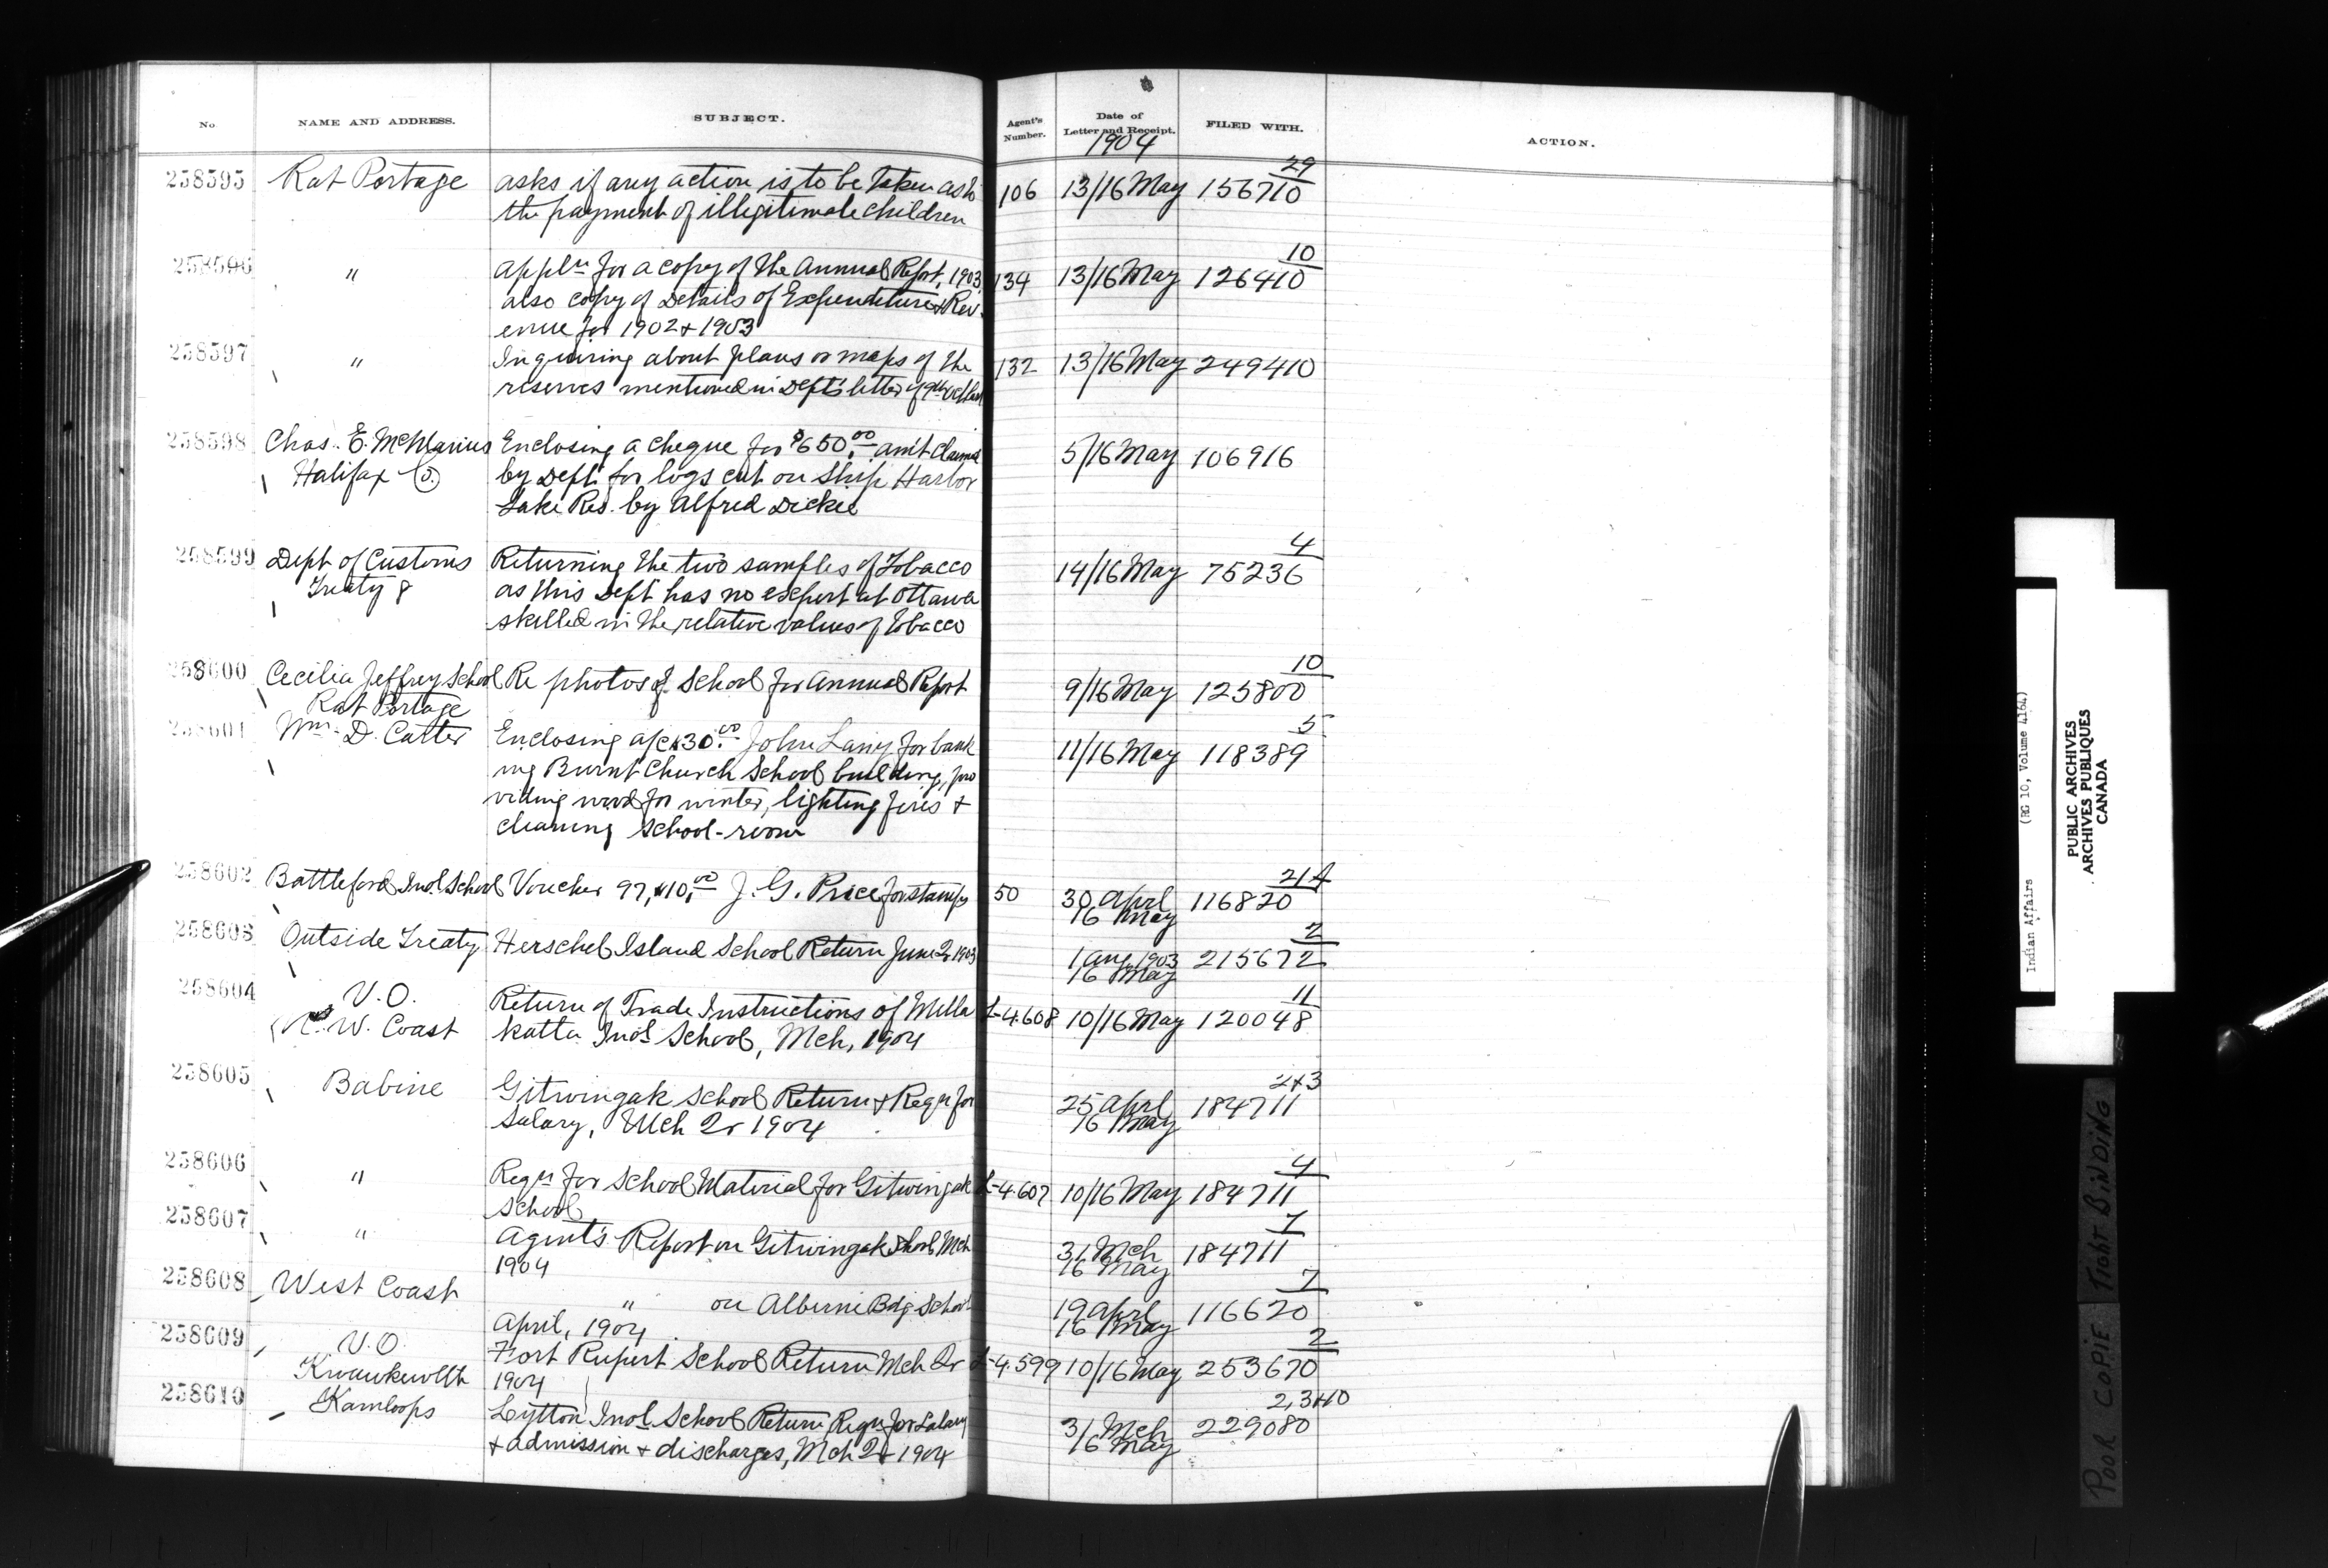 No. NAME AND ADDRESS. SUBJECT. Agent's Number. Date of Letter and Receipt. FILED WITH. ACTION.
1904
29
258595 Rat Portage asks if any action is to be taken as to 106 13/16 May 156710
the payment of illegitimate children
10
258596 " Appln for a copy of the Annual Report, 1903, 134 13/16 May 126410
also copy of Details of Expenditure & Rev-
enue for 1902 & 1903
258597 " Inquiring about plans or maps of the 132 13/16 May 249410
reserves mentioned in Dept's letter of 9th
258598 Chas. E. Enclosing a cheque for $650.00 am't claimed 5/16 May 106916
Halifax Co. by Dept. for logs cut on Ship Harbor
Lake Res. by Alfred Dickie
4
258599 Dept of Customs Returning the two samples of Tobacco 14/16 May 75236
Treaty 8 as this Dept has no expert at Ottawa
skilled in the relative values of Tobacco
10
258600 Cecilia Jeffrey School Re photos of School for Annual Report 9/16 May 125800
Rat Portage
5
258601 Wm. D. Carter Enclosing a/c $30.00 John Lany for bank
11/16 May 118389
ing Burnt Church School building, pro
viding wood for winter, lighting fires &
cleaning school-room
214
258602 Battleford Indl School Voucher 97, $10.00 J. G. Price for stamps 50 30 April 116820
16 May
2
258603 Outside Treaty Herschel Island School Return June Qr 1903 1 Aug 1903 215672
16 May
11
258604 V.O. Return of Trade Instructions of Metla L-4.608 10/16 May 120048
N. W. Coast katla Indl School, Mch, 1904
2&3
258605 Babine Gitwingak School Return & Reqn for 25 April 184711
Salary, Mch Qr 1904 16 May
4
258606 " Reqn for School Material for Gitwingak L-4.607 10/16 May 184711
School
7
258607 " Agent's Report on Gitwingak School Mch 31 Mch 184711
1904 16 May
7
258608 West Coast " on Alberni Bdg School 19 April 116620
April, 1904 16 May
2
258609 V.O. Fort Rupert School Return Mch Qr L-4.599 10/16 May 253670
Kwawkewlth 1904
2,3&10
258610 Kamloops Lytton Indl School Return, Reqn for Salary 31 Mch 229080
& admission & discharges, Mch Qr 1904 16 May
Indian Affairs (RG 10, Volume 4164)
PUBLIC ARCHIVES
ARCHIVES PUBLIQUES
CANADA
POOR COPIE TIGHT BINDING